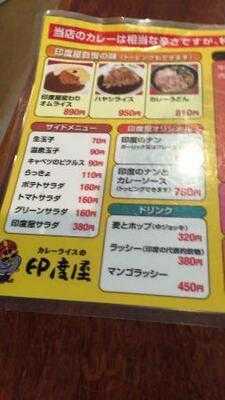 当店のカレーは相当な辛さですが、
印度屋自慢の味 (トッピングもできます)
印度屋変わり
オムライス
890円
ハヤシライス
950円
カレーうどん
810円
サイドメニュー
生玉子 70円
温泉玉子 90円
キャベツのピクルス 90円
らっきょ 110円
ポテトサラダ 160円
トマトサラダ 160円
グリーンサラダ 160円
印度屋サラダ 380円
印度屋オリジナル
印度のナン
印度のナンと
カレーソース
(トッピングできます) 760円
ドリンク
麦とホップ (中ジョッキ)
320円
ラッシー (印度の代表的飲物)
380円
マンゴラッシー
450円
カレーライスの
印度屋